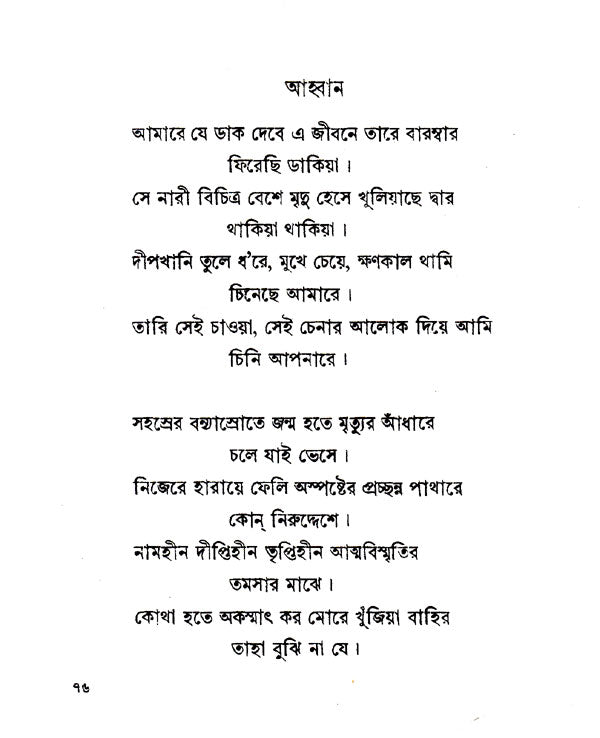 আহ্বান
আমারে যে ডাক দেবে এ জীবনে তারে বারম্বার
ফিরেছি ডাকিয়া।
সে নারী বিচিত্র বেশে মৃদু হেসে খুলিয়াছে দ্বার
থাকিয়া থাকিয়া।
দীপখানি তুলে ধ'রে, মুখে চেয়ে, ক্ষণকাল থামি
চিনেছে আমারে।
তারি সেই চাওয়া, সেই চেনার আলোক দিয়ে আমি
চিনি আপনারে।
সহস্রের বন্যাস্রোতে জন্ম হতে মৃত্যুর আঁধারে
চলে যাই ভেসে।
নিজেরে হারায়ে ফেলি অস্পষ্টের প্রচ্ছন্ন পাথারে
কোন্ নিরুদ্দেশে।
নামহীন দীপ্তিহীন তৃপ্তিহীন আত্মবিস্মৃতির
তমসার মাঝে।
কোথা হতে অকস্মাৎ কর মোরে খুঁজিয়া বাহির
তাহা বুঝি না যে।
৭৬